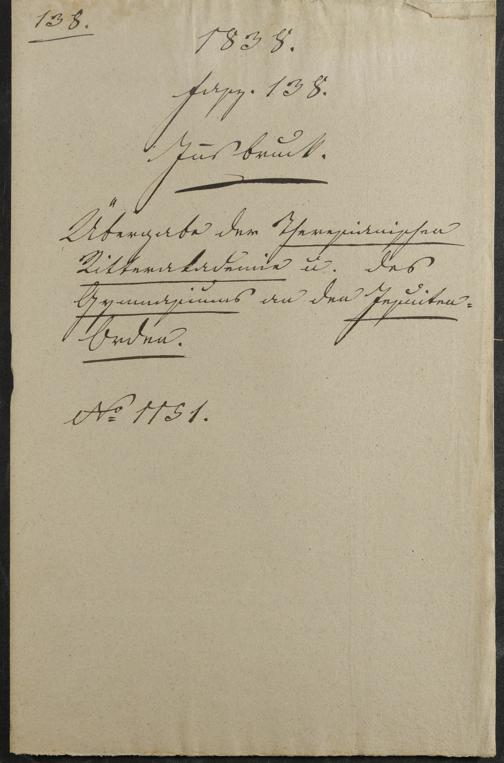 138.
1838.
Fasz. 138.
Insbruck.
Übergabe der Theresianischen
Ritterakademie u. des
Gymnasiums an den Jesuiten=
Orden.
No 1151.